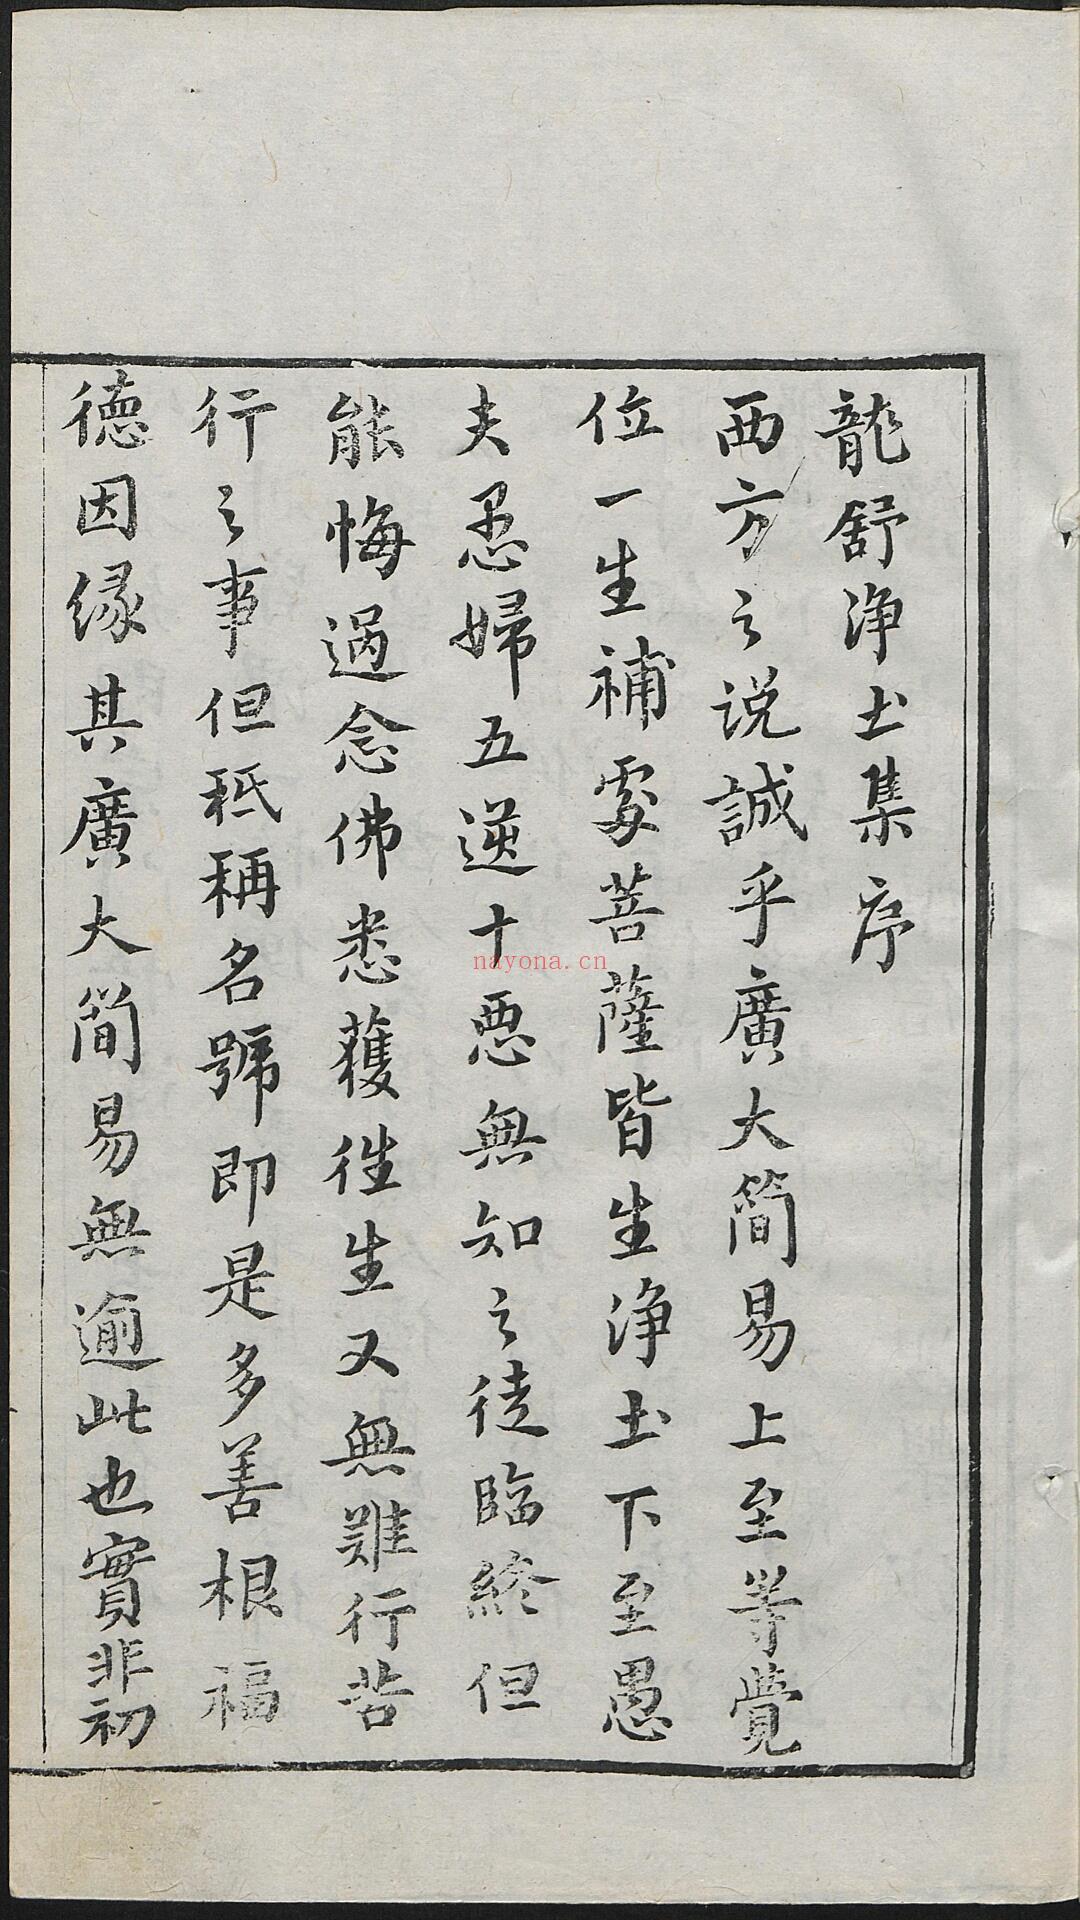 龍舒淨土集序
西方之説誠乎廣大簡易上至等覺
位一生補處菩薩皆生淨土下至愚
夫愚婦五逆十惡無知之徒臨終但
能悔過念佛悉獲徃生又無難行苦
行之事但秪稱名號即是多善根福
德因緣其廣大簡易無逾此也實非初
nayona.cn